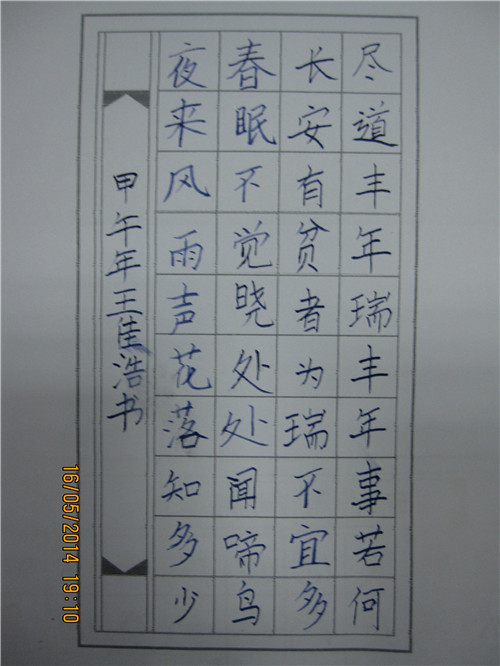 尽道丰年瑞丰年事若何
长安有贫者为瑞不宜多
春眠不觉晓处处闻啼鸟
夜来风雨声花落知多少
甲午年王佳浩书
16/05/2014 19:10